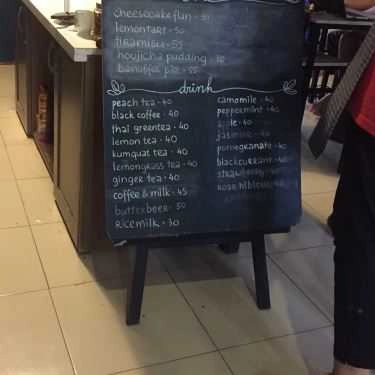 cheesecake flan - 50
lemon tart - 50
tiramisu - 55
houjicha pudding
banoffee pie - 55
drink
peach tea - 40
black coffee - 40
thai greentea - 40
lemon tea - 40
kumquat tea - 40
lemongrass tea - 40
ginger tea - 40
coffee & milk - 45
butterbeer - 50
Ricemilk - 30
camomile - 40
peppermint - 40
apple - 40
jasmine - 40
pomegranate - 40
blackcurrant - 40
strawberry - 40
rose hibiscus - 40